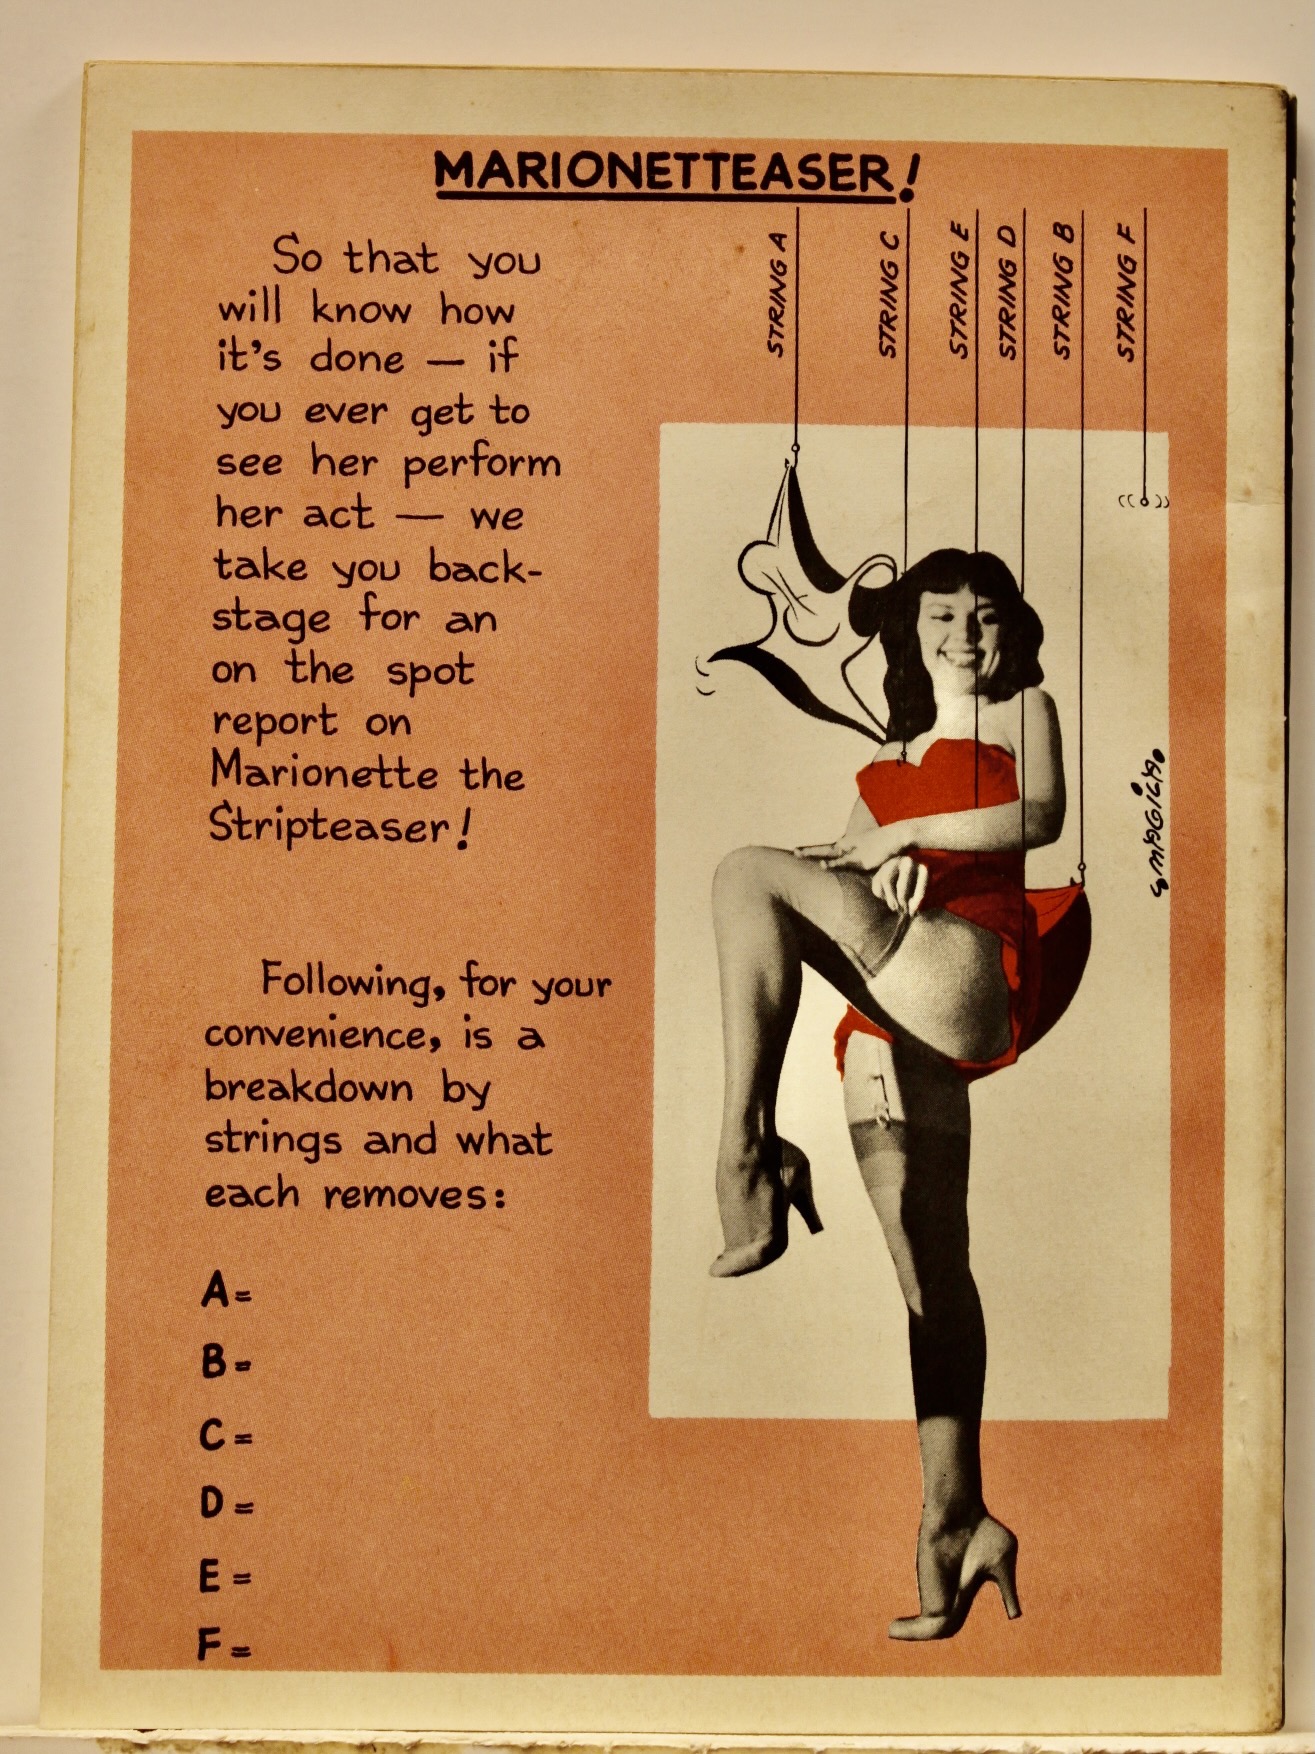 MARIONETTEASER!
So that you
will know how
it's done — if
you ever get to
see her perform
her act — we
take you back-
stage for an
on the spot
report on
Marionette the
Stripteaser!
Following, for your
convenience, is a
breakdown by
strings and what
each removes:
A=
B=
C=
D=
E=
F=
STRING A
STRING C
STRING E
STRING D
STRING B
STRING F